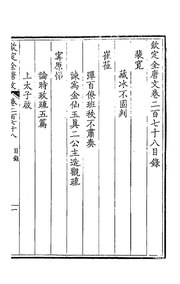 欽定全唐文卷二百七十八目錄
裴寬
藏冰不固判
崔莅
彈百僚班秩不肅奏
諫為金仙玉真二公主造觀疏
甯原悌
論時政疏五篇
上太子啟
欽定全唐文
卷二百七十八
目錄
一